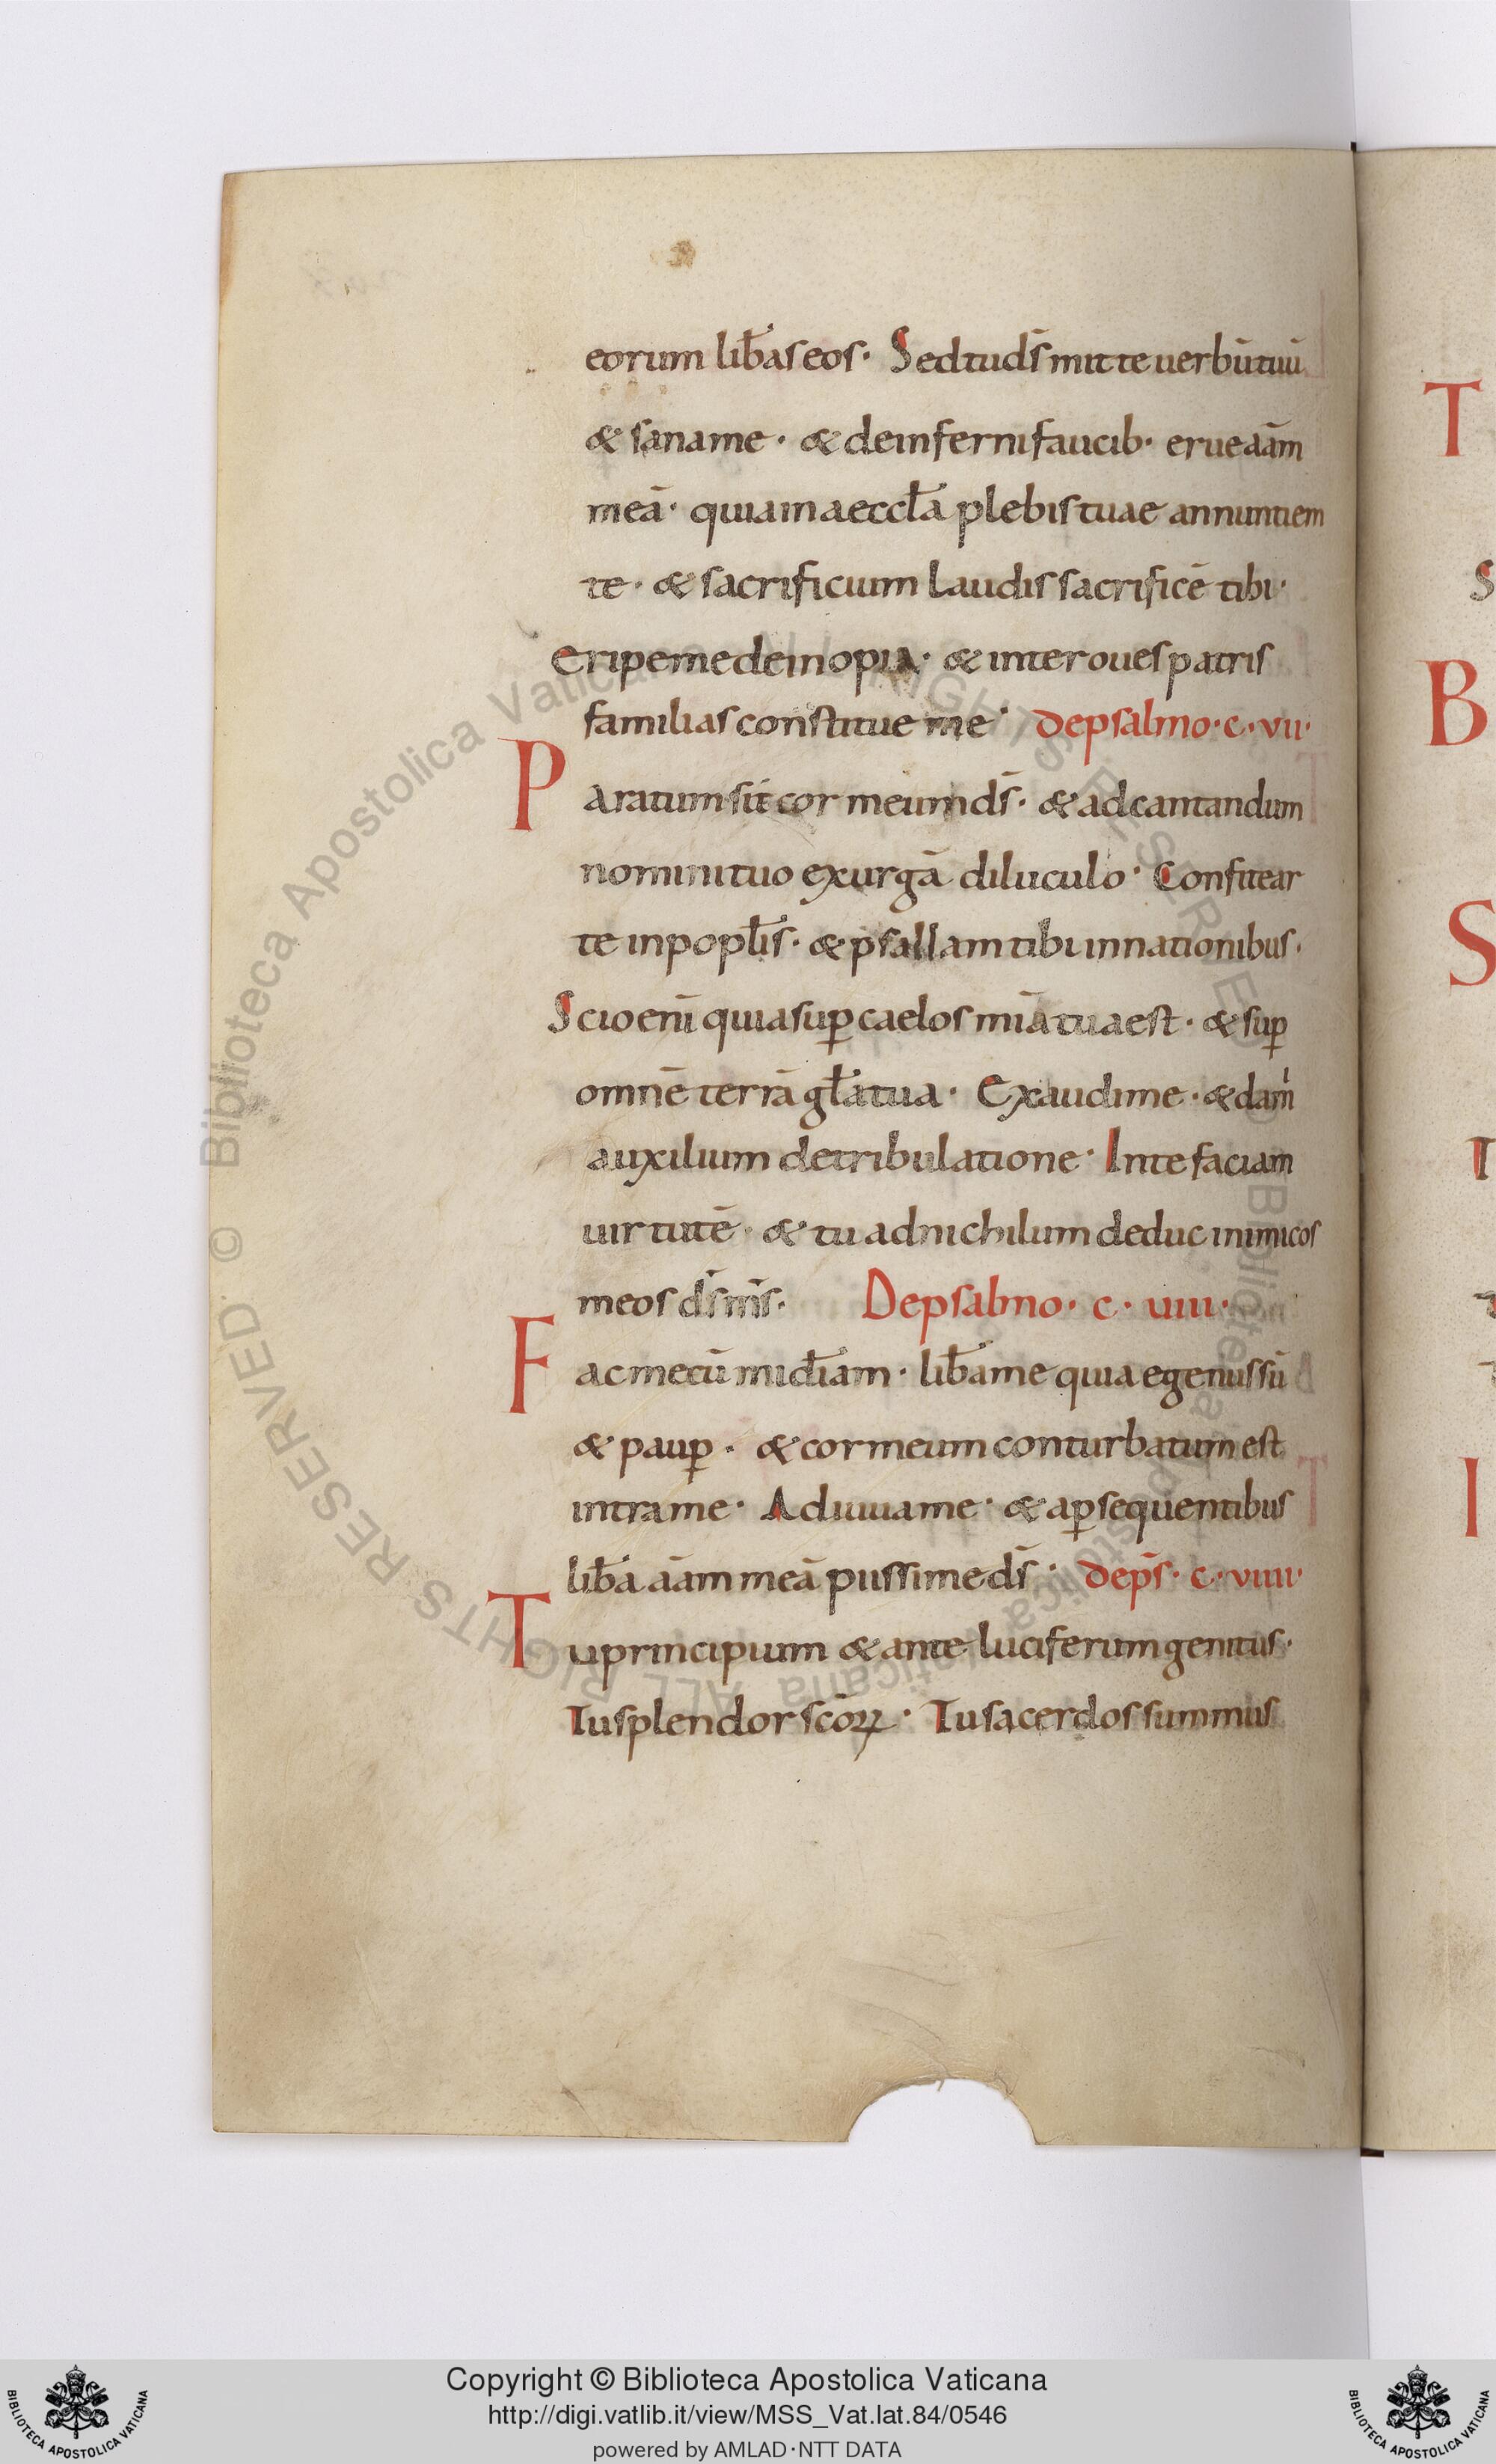 eorum lib̄as eos· Sed tu ds̄ mitte uerbū tuū
& sana me· & de inferni faucib· erue aām
meā· qui am aeccl̄a plebis tuae annuntiem
te· & sacrificium laudis sacrificē tibi·
Eripe me de inopia· & inter oues patris
familias constitue me· De psalmo·c·vii·
Paratum sit cor meum ds̄· & ad cantandum
nomini tuo exurgā diluculo· Confitear
te in popl̄is· & psallam tibi in nationibus·
Scio enī quia sup̱ caelos mīa tua est· & sup̱
omnē terrā gl̄a tua· Exaudi me·& da m̍
auxilium de tribulatione· In te faciam
uirtutē· & tu ad nichilum deduc inimicos
meos ds̄ ms̄· De psalmo· c· uiii·
Fac mecū mīcdiam· lib̄a me quia egenus sū
& paup̱· & cor meum conturbatum est
intra me· Adiuua me· & a p̱sequentibus
lib̄a aām meā piissime ds̄· De ps̄· c· viiii·
Tu principium & ante luciferum genitus·
Tu splendor scōꝝ· Tu sacerdos summus
T
S
B
S
I
I
© Biblioteca Apostolica Vaticana ALL RIGHTS RESERVED
Copyright © Biblioteca Apostolica Vaticana
http://digi.vatlib.it/view/MSS_Vat.lat.84/0546
powered by AMLAD·NTT DATA
BIBLIOTECA APOSTOLICA VATICANA
BIBLIOTECA APOSTOLICA VATICANA